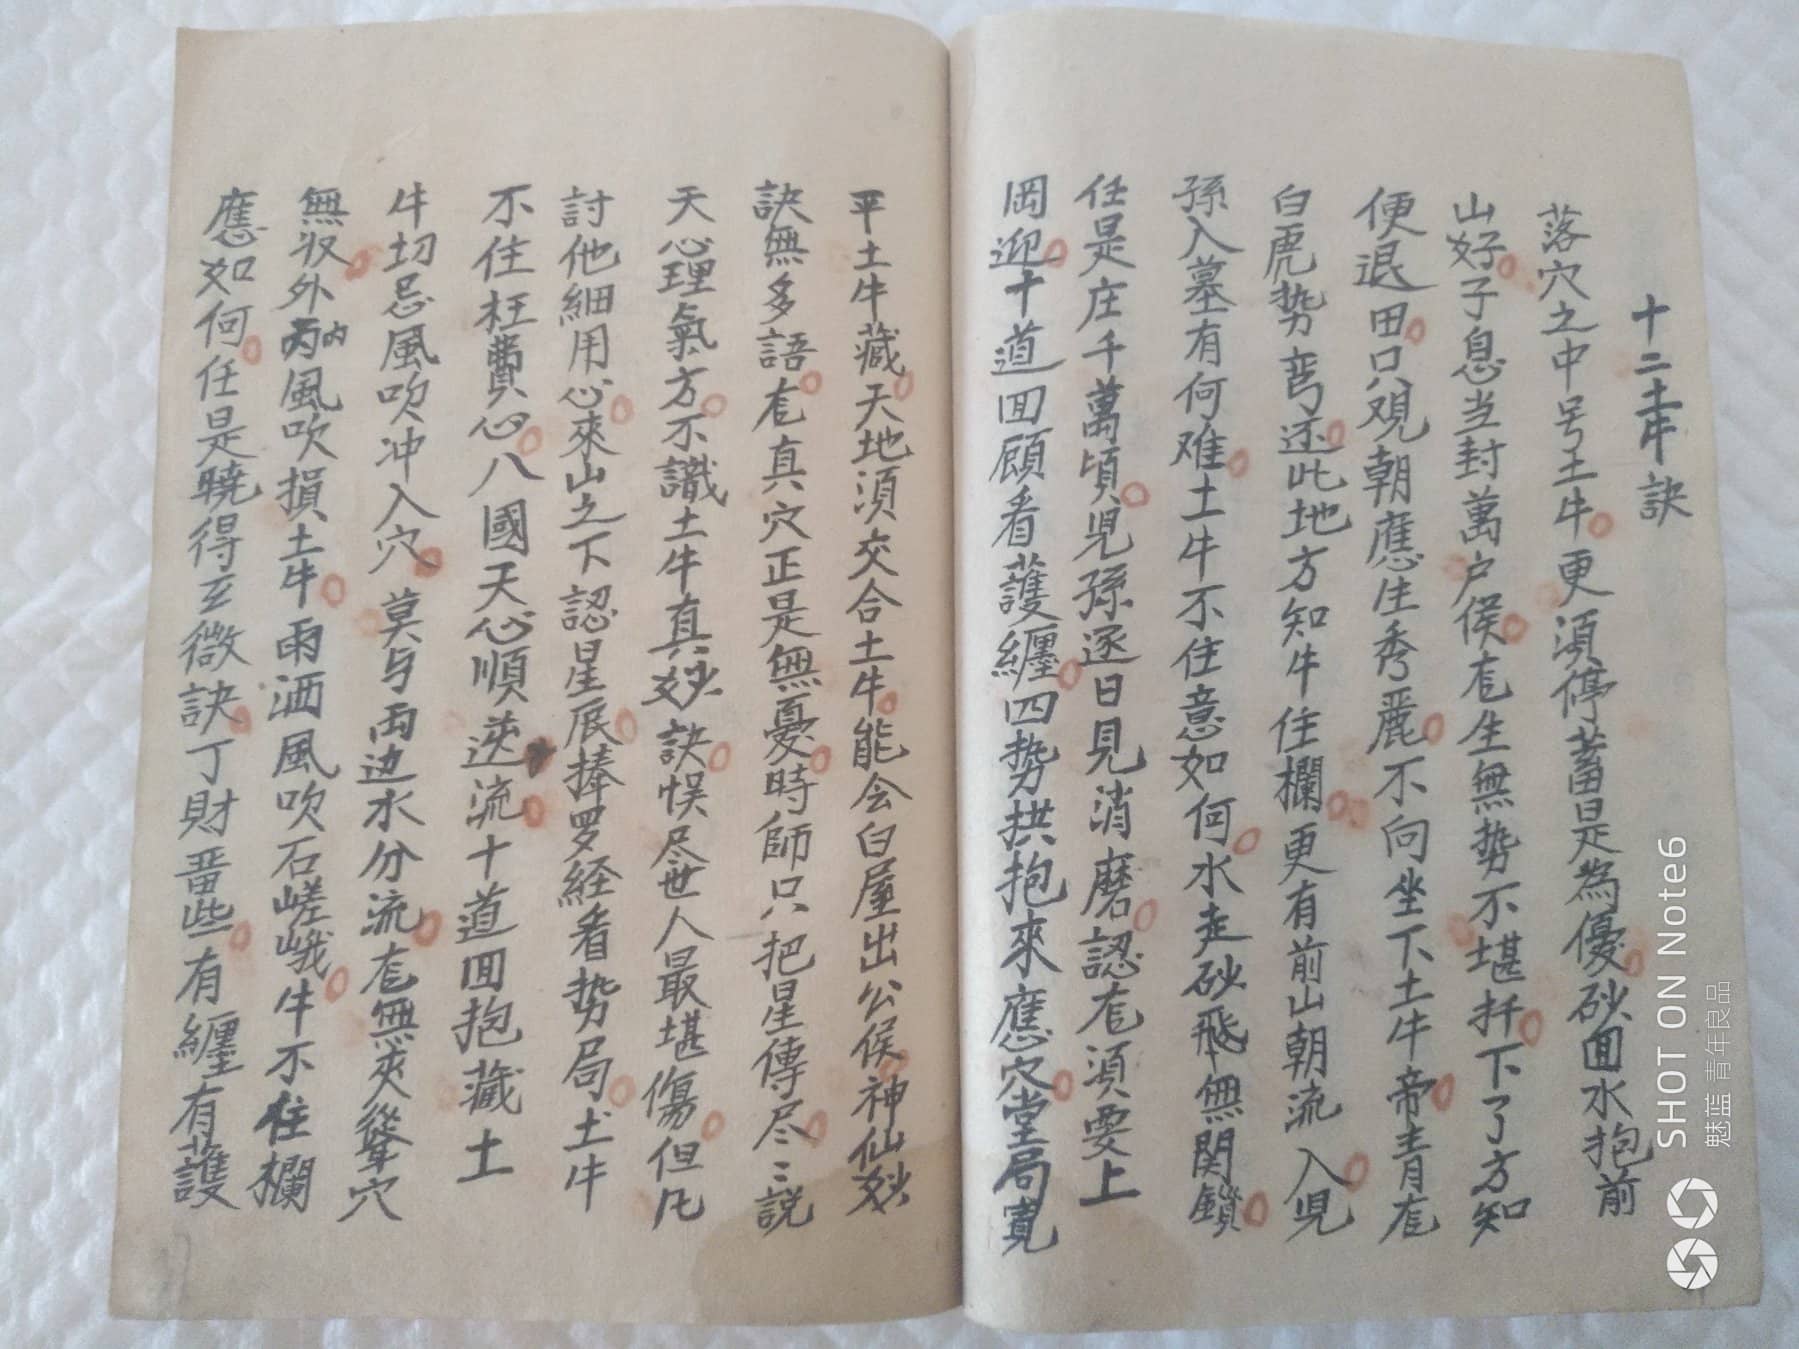 十二土牛訣
落穴之中号土牛更須停蓄是為優砂回水抱前
山好子息当封萬户侯㡯生無势不堪扦下了方知
便退田只观朝應生秀麗不向坐下土牛帝青㡯
白虎势弯还此地方知牛住欄更有前山朝流入児
孫入墓有何难土牛不住意如何水走砂飛無関鎖
任是庄千萬頃児孫逐日見消磨認㡯須要上
岡迎十道回顾看護纏四势拱抱來應穴堂局寬
平土牛藏天地須交合土牛能会白屋出公侯神仙妙
訣無多語㡯真穴正是無憂時師只把星傳尽〻説
天心理氣方不識土牛真妙訣悮尽世人最堪傷但凡
討他細用心來山之下認星辰捧罗経看势局土牛
不住枉費心八國天心順逆流十道回抱藏土
牛切忌風吹冲入穴莫与両边水分流㡯無夾聳穴
無収外内風吹損土牛雨洒風吹石嵯峨牛不住欄
應如何任是曉得玄微訣丁財啬些有纏有護
SHOT ON Note6
魅蓝 青年良品